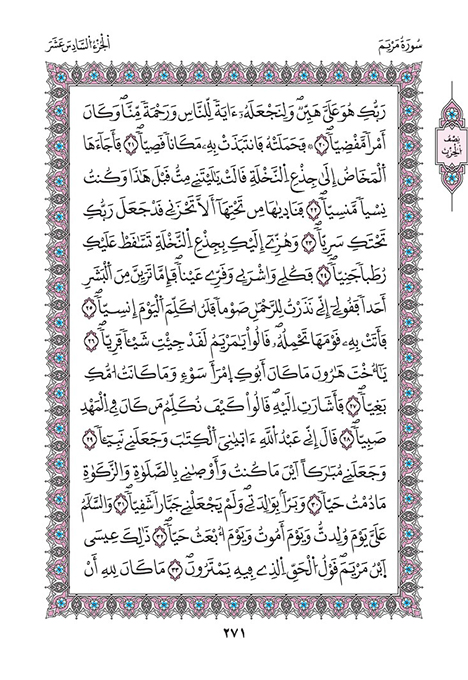 سُورَةُ مَرْيَمَ
الجُزْءُ السَّادِسَ عَشَرَ
نِصْفُ الْحِزْبِ
رَبُّكِ هُوَ عَلَيَّ هَيِّنٌ وَلِنَجْعَلَهُۥ ءَايَةً لِّلنَّاسِ وَرَحْمَةً مِّنَّا وَكَانَ
أَمْراً مَّقْضِيّاً ٢٠ فَحَمَلَتْهُ فَانتَبَذَتْ بِهِۦ مَكَاناً قَصِيّاً ٢١ فَأَجَآءَهَا
اَ۬لْمَخَاضُ إِلَىٰ جِذْعِ اِ۬لنَّخْلَةِ قَالَتْ يَٰلَيْتَنِي مِتُّ قَبْلَ هَٰذَا وَكُنتُ
نِسْياً مَّنسِيّاً ٢٢ فَنَادٜيٰهَا مِن تَحْتِهَآ أَلَّا تَحْزَنِي قَدْ جَعَلَ رَبُّكِ
تَحْتَكِ سَرِيّاً ٢٣ وَهُزِّيٓ إِلَيْكِ بِجِذْعِ اِ۬لنَّخْلَةِ تَسَّٰقَطْ عَلَيْكِ
رُطَباً جَنِيّاً ٢٤ فَكُلِي وَاشْرَبِي وَقَرِّي عَيْناً فَإِمَّا تَرَيِنَّ مِنَ اَ۬لْبَشَرِ
أَحَداً فَقُولِيٓ إِنِّي نَذَرْتُ لِلرَّحْمَٰنِ صَوْماً فَلَنُ ا۟كَلِّمَ اَ۬لْيَوْمَ إِنسِيّاً ٢٥
فَأَتَتْ بِهِۦ قَوْمَهَا تَحْمِلُهُۥ قَالُواْ يَٰمَرْيَمُ لَقَدْ جِئْتِ شَيْـٔاً فَرِيّاً ٢٦
يَٰٓأُخْتَ هَٰرُونَ مَا كَانَ أَبُوكِ اِ۪مْرَأَ سَوْءٍ وَمَا كَانَتُ ا۟مُّكِ
بَغِيّاً ٢٧ فَأَشَارَتِ اِلَيْهِ قَالُواْ كَيْفَ نُكَلِّمُ مَن كَانَ فِي اِ۬لْمَهْدِ
صَبِيّاً ٢٨ قَالَ إِنِّي عَبْدُ اُ۬للَّهِ ءَاتٜيٰنِيَ اَ۬لْكِتَٰبَ وَجَعَلَنِي نَبِيٓـٔاً ٢٩
وَجَعَلَنِي مُبَٰرَكاً اَيْنَ مَا كُنتُ وَأَوْصَٰنِي بِالصَّلَوٰةِ وَالزَّكَوٰةِ
مَا دُمْتُ حَيّاً ٣٠ وَبَرّاً بِوَٰلِدَتِي وَلَمْ يَجْعَلْنِي جَبَّاراً شَقِيّاً ٣١ وَالسَّلَٰمُ
عَلَيَّ يَوْمَ وُلِدتُّ وَيَوْمَ أَمُوتُ وَيَوْمَ أُبْعَثُ حَيّاً ٣٢ ذَٰلِكَ عِيسَى
اَ۪بْنُ مَرْيَمَ قَوْلُ اُ۬لْحَقِّ اِ۬لذِے فِيهِ يَمْتَرُونَ ٣٣ مَا كَانَ لِلهِ أَنْ
٢٧١